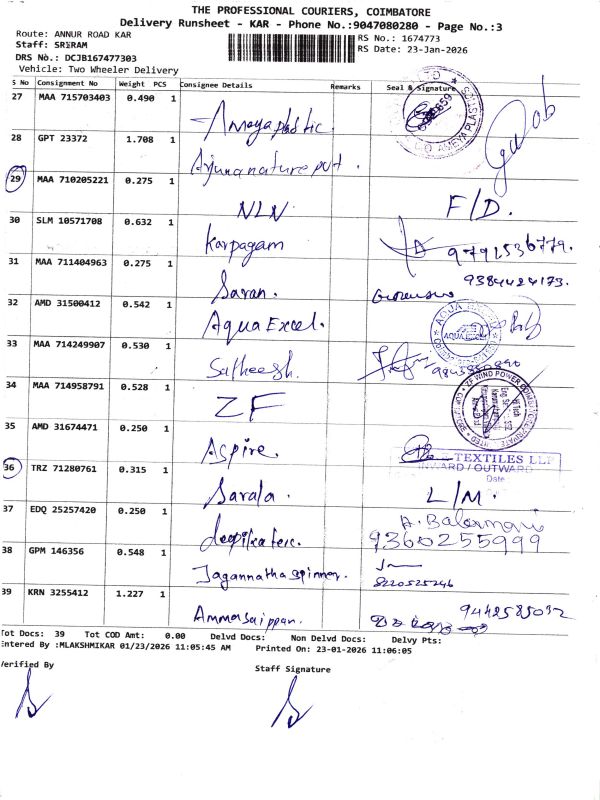 THE PROFESSIONAL COURIERS, COIMBATORE
Delivery Runsheet - KAR - Phone No.:9047080280 - Page No.:3
Route: ANNUR ROAD KAR
RS No.: 1674773
Staff: SRIRAM
RS Date: 23-Jan-2026
DRS No.: DCJB167477303
Vehicle: Two Wheeler Delivery
S No Consignment No Weight PCS Consignee Details Remarks Seal & Signature
27 MAA 715703403 0.490 1 Ameya plastic.
28 GPT 23372 1.708 1 Arjuna nature pvt.
29 MAA 710205221 0.275 1 NLN F/D.
30 SLM 10571708 0.632 1 Karpagam 9791536779.
31 MAA 711404963 0.275 1 Saran. 9384424173.
32 AMD 31500412 0.542 1 Aqua Excel. AQUA EXCEL
33 MAA 714249907 0.530 1 Satheesh.
34 MAA 714958791 0.528 1 ZF ZF WIND POWER COIMBATORE PRIVATE LIMITED
35 AMD 31674471 0.250 1 Aspire. TEXTILES LLP
INWARD / OUTWARD
Date
36 TRZ 71280761 0.315 1 Sarala. L/M.
37 EDQ 25257420 0.250 1 deepikatex. A. Balamani
9360255999
38 GPM 146356 0.548 1 Jagannatha spinner. 8220525246
39 KRN 3255412 1.227 1 Ammansaippan. 9442585032
Tot Docs: 39 Tot COD Amt: 0.00 Delvd Docs: Non Delvd Docs: Delvy Pts:
Entered By :MLAKSHMIKAR 01/23/2026 11:05:45 AM Printed On: 23-01-2026 11:06:05
Verified By Staff Signature